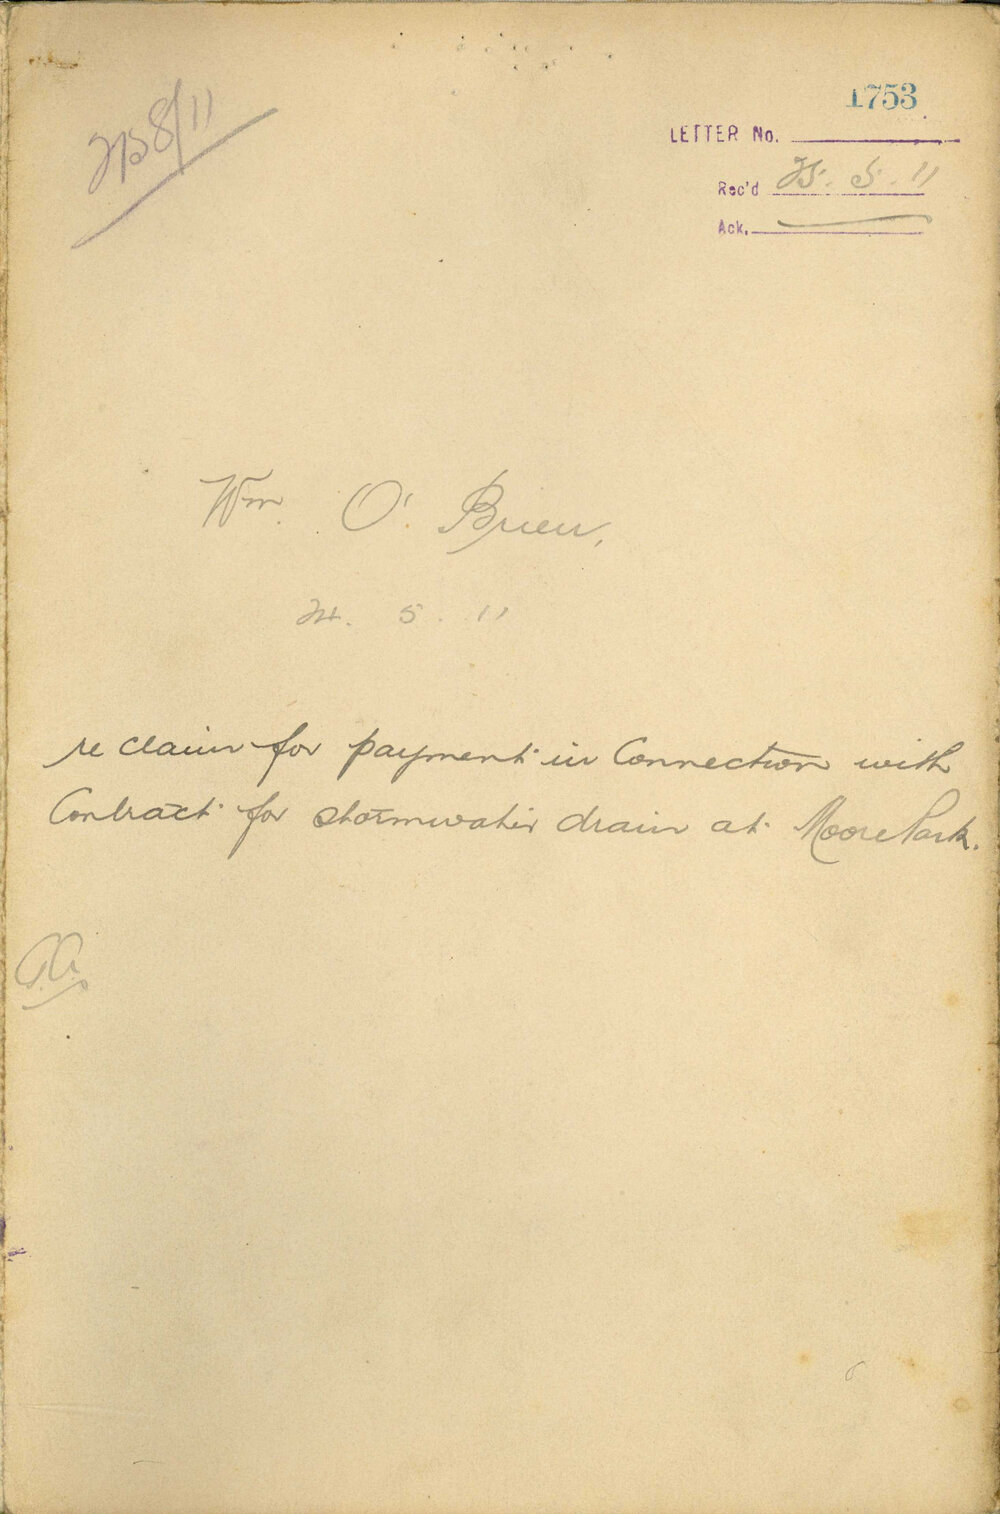 2758/11
1753
LETTER No.
Rec'd 25. 5. 11
Ack.
Wm. O'Brien,
24. 5. 11
re claim for payment in Connection with
Contract for stormwater drain at Moore Park.